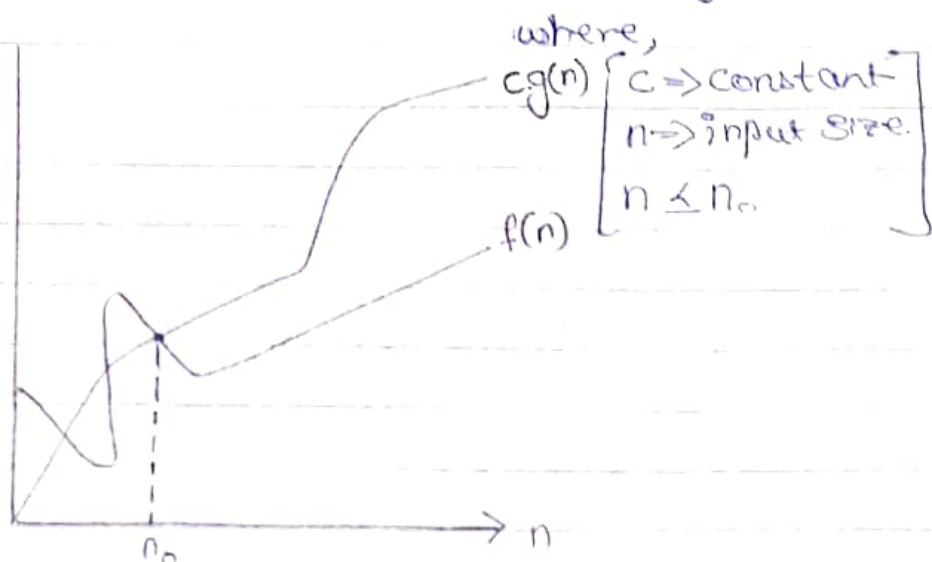 where,
c.g(n) [ c => constant
n => input size.
n ≤ n₀ ]
f(n)
n₀
n